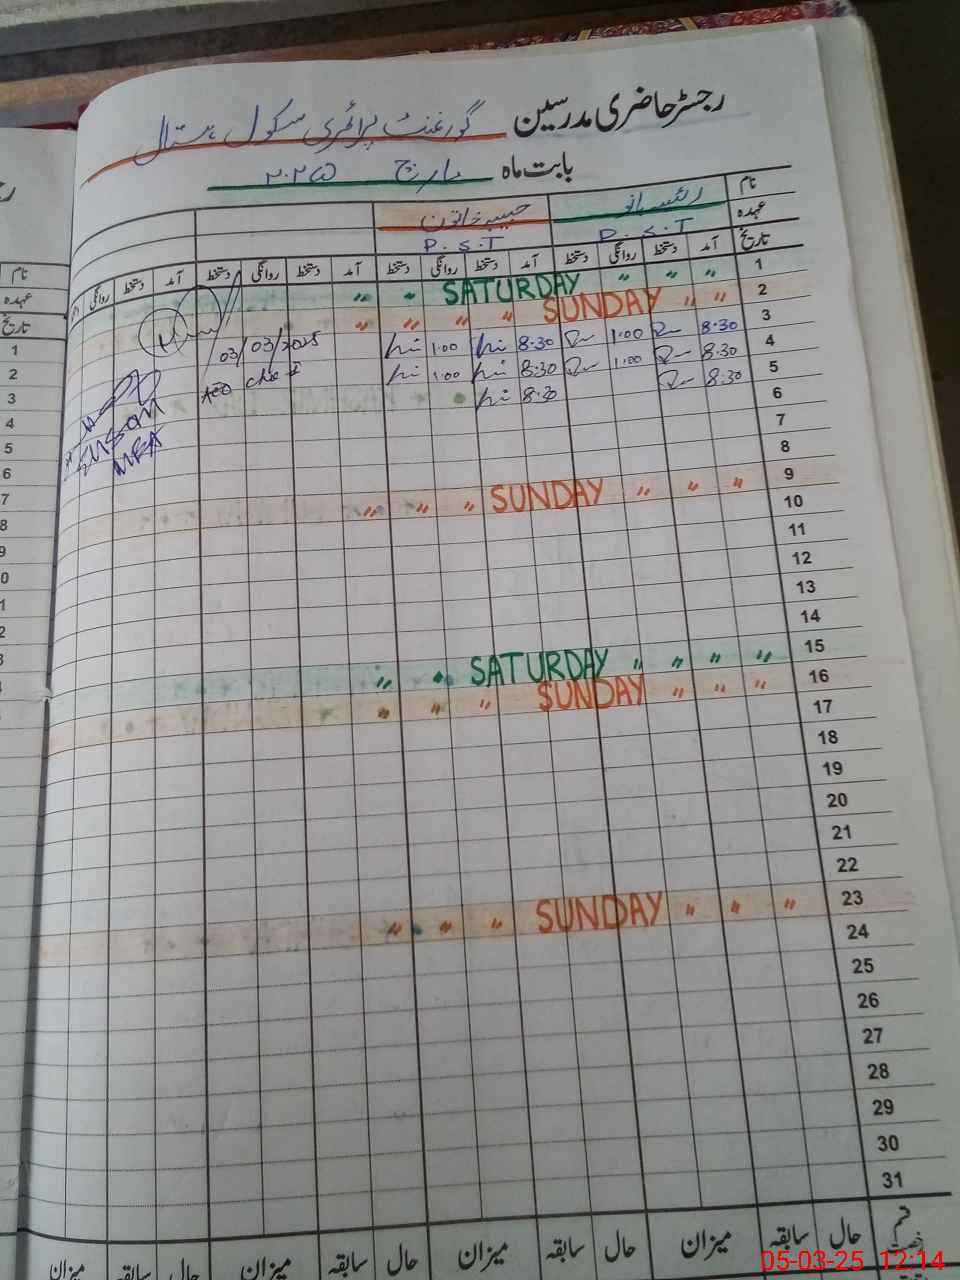 رجسٹر حاضری مدرسین گورنمنٹ پرائمری سکول ہستال
بابت ماہ مارچ ۲۰۲۵
نام رئیسہ بانو حبیبہ خاتون
عہدہ P.S.T P.S.T
تاریخ آمد دستخط روانگی دستخط آمد دستخط روانگی دستخط آمد دستخط روانگی دستخط آمد دستخط روانگی
1 " " " SATURDAY " "
2 " " SUNDAY " " " "
3 8:30 1:00 8:30 1:00 03/03/2025
4 8:30 1:00 8:30 1:00
5 8:30 8:30
6
7
8
9 " " " SUNDAY " " "
10
11
12
13
14
15 " " " " SATURDAY " "
16 " " " SUNDAY " " "
17
18
19
20
21
22
23 " " " SUNDAY " " "
24
25
26
27
28
29
30
31
حال سابقہ میزان حال سابقہ میزان حال سابقہ میزان حال سابقہ میزان
نام
عہدہ
تاریخ
1
2
3
4
5
6
7
8
9
05-03-25 12:14